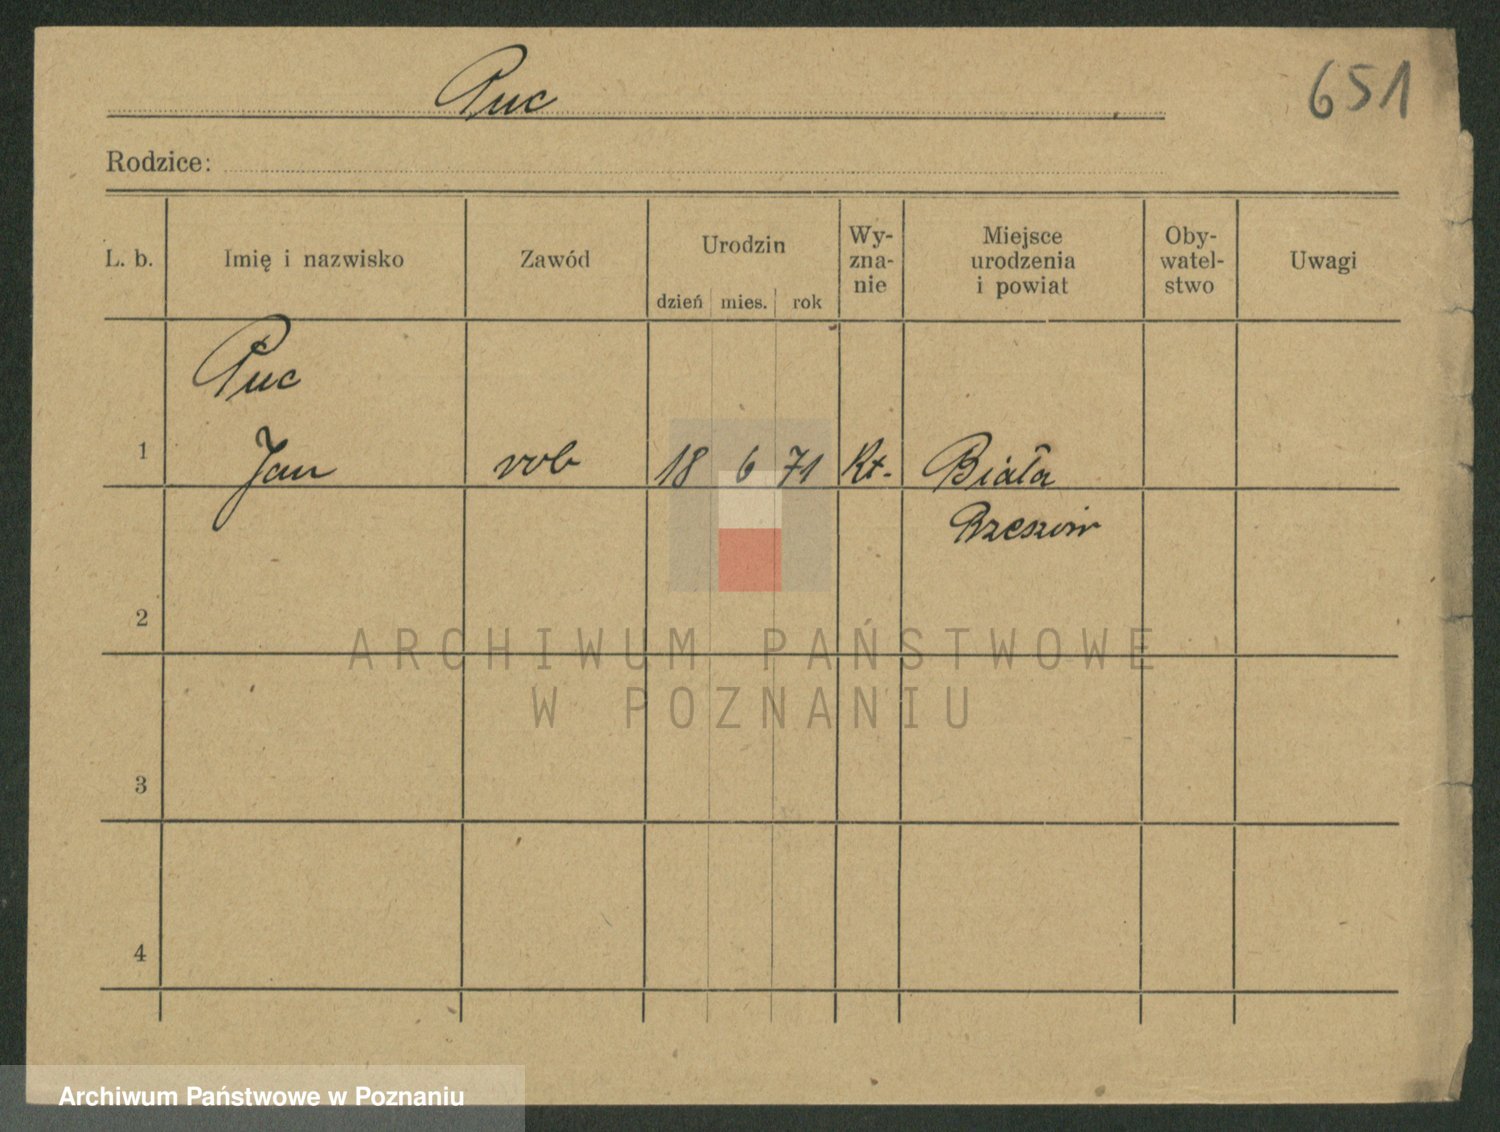 Puc
651
Rodzice:
L. b. Imię i nazwisko Zawód Urodzin dzień mies. rok Wy-zna-nie Miejsce urodzenia i powiat Oby-watel-stwo Uwagi
Puc
1 Jan rob 18 6 71 Rt. Biała
Rzeszów
2
ARCHIWUM PAŃSTWOWE
W POZNANIU
3
4
Archiwum Państwowe w Poznaniu